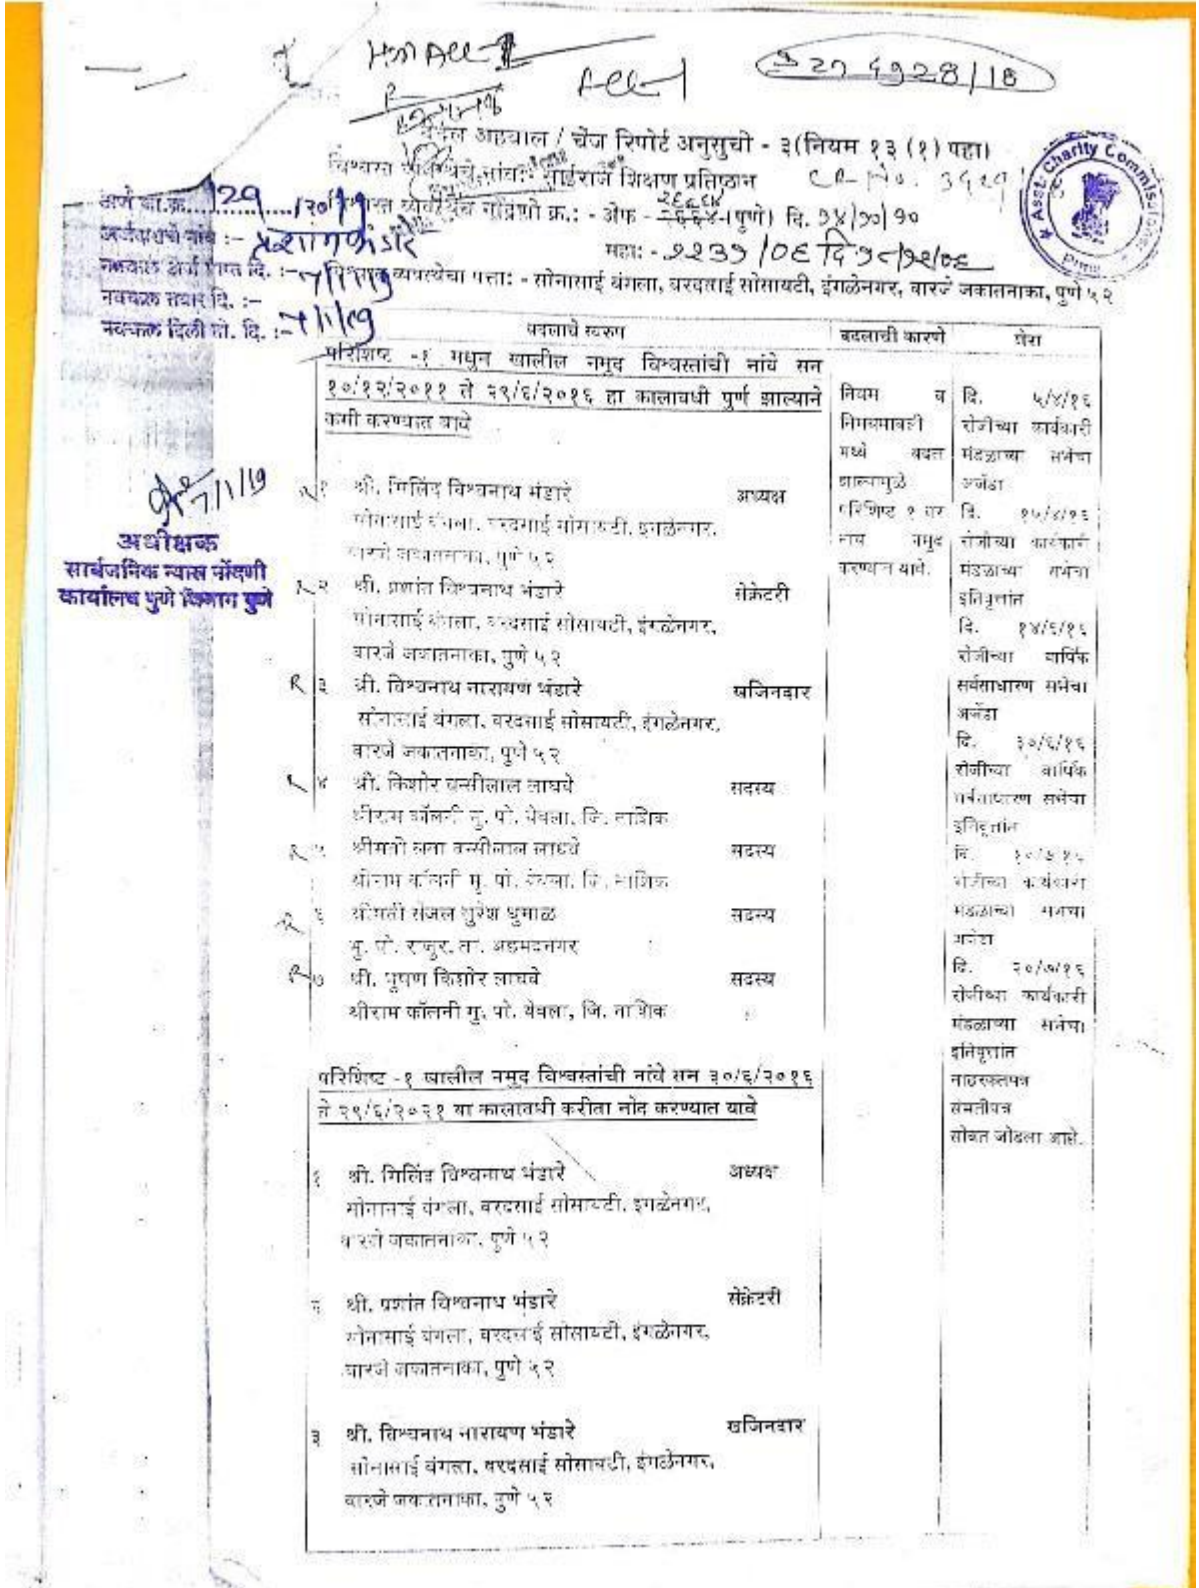 Acc-1
बदल अहवाल / चेंज रिपोर्ट अनुसुची - ३(नियम १३ (१) पहा)
विश्वस्त व्यवस्थेचे नांव: साईराज शिक्षण प्रतिष्ठान
Asst. Charity Commissioner
अर्ज बा.क्र. 129/2019
विश्वस्त व्यवस्थेचे नोंदणी क्र.: - अेफ - (पुणे) दि. १४/१०/१०
अर्जदाराचे नांव :- प्रशांत भंडारे
महा: - १२३१/०६ दि १८/१२/०६
नक्कल अर्ज प्राप्त दि. :- 7/1/19
विश्वस्त व्यवस्थेचा पत्ता: - सोनासाई बंगला, वरदसाई सोसायटी, इंगळेनगर, वारजे जकातनाका, पुणे ५२
नक्कल तयार दि. :-
नक्कल दिली तो. दि. :- 7/1/19
बदलाचे स्वरुप
बदलाची कारणे
शेरा
परिशिष्ट -१ मधुन खालील नमुद विश्वस्तांची नांवे सन
१०/१२/२०११ ते २९/६/२०१६ हा कालावधी पुर्ण झाल्याने
कमी करण्यात यावे
नियम व
नियमावली
मध्ये बदल
झाल्यामुळे
परिशिष्ट १ वर
नाव नमुद
करण्यात यावे.
दि. ५/४/१६
रोजीच्या कार्यकारी
मंडळाच्या सभेचा
अजेंडा
दि. १५/४/१६
रोजीच्या कार्यकारी
मंडळाच्या सभेचा
इतिवृत्तांत
दि. १४/६/१६
रोजीच्या वार्षिक
सर्वसाधारण सभेचा
अजेंडा
दि. ३०/६/१६
रोजीच्या वार्षिक
सर्वसाधारण सभेचा
इतिवृत्तांत
दि.
रोजीच्या कार्यकारी
मंडळाच्या सभेचा
अजेंडा
दि. २०/७/१६
रोजीच्या कार्यकारी
मंडळाच्या सभेचा
इतिवृत्तांत
नाहरकतपत्र
संमतीपत्र
सोबत जोडला आहे.
7/1/19
अधीक्षक
सार्वजनिक न्यास नोंदणी
कार्यालय पुणे विभाग पुणे
R १ श्री. मिलिंद विश्वनाथ भंडारे अध्यक्ष
सोनासाई बंगला, वरदसाई सोसायटी, इंगळेनगर,
वारजे जकातनाका, पुणे ५२
R २ श्री. प्रशांत विश्वनाथ भंडारे सेक्रेटरी
सोनासाई बंगला, वरदसाई सोसायटी, इंगळेनगर,
वारजे जकातनाका, पुणे ५२
R ३ श्री. विश्वनाथ नारायण भंडारे खजिनदार
सोनासाई बंगला, वरदसाई सोसायटी, इंगळेनगर,
वारजे जकातनाका, पुणे ५२
R ४ श्री. किशोर बन्सीलाल लाघवे सदस्य
श्रीराम कॉलनी मु. पो. येवला, जि. नाशिक
R ५ श्रीमती लता बन्सीलाल लाघवे सदस्य
श्रीराम कॉलनी मु. पो. येवला, जि. नाशिक
R ६ श्रीमती सेजल सुरेश धुमाळ सदस्य
मु. पो. राजुर, ता. अहमदनगर
R ७ श्री. भुषण किशोर लाघवे सदस्य
श्रीराम कॉलनी मु. पो. येवला, जि. नाशिक
परिशिष्ट -१ खालील नमुद विश्वस्तांची नांवे सन ३०/६/२०१६
ते २९/६/२०२१ या कालावधी करीता नोंद करण्यात यावे
१ श्री. मिलिंद विश्वनाथ भंडारे अध्यक्ष
सोनासाई बंगला, वरदसाई सोसायटी, इंगळेनगर,
वारजे जकातनाका, पुणे ५२
२ श्री. प्रशांत विश्वनाथ भंडारे सेक्रेटरी
सोनासाई बंगला, वरदसाई सोसायटी, इंगळेनगर,
वारजे जकातनाका, पुणे ५२
३ श्री. विश्वनाथ नारायण भंडारे खजिनदार
सोनासाई बंगला, वरदसाई सोसायटी, इंगळेनगर,
वारजे जकातनाका, पुणे ५२